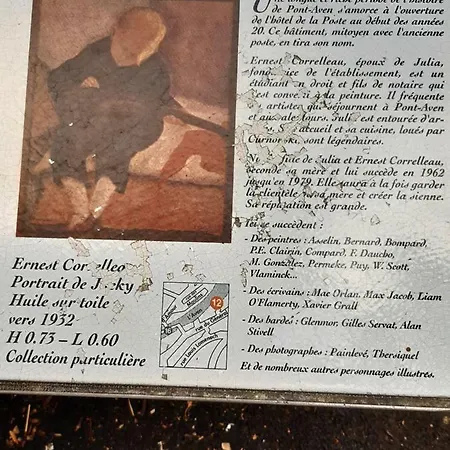 de Pont-Aven s'amorce à l'ouverture
de l'hôtel de la Poste au début des années
20. Ce bâtiment, mitoyen avec l'ancienne
poste, en tira son nom.
Ernest Correlleau, époux de Julia,
de l'établissement, est un
étudiant en droit et fils de notaire qui
est à la peinture. Il fréquente
artistes qui séjournent à Pont-Aven
et entourée d'ar-
et sa cuisine, loués par
sont légendaires.
de Julia et Ernest Correlleau,
seconde sa mère et lui succède en 1962
jusqu'en 1979. Elle saura à la fois garder
la clientèle sa mère et créer la sienne.
Sa réputation est grande.
se succèdent :
- Des peintres : Asselin, Bernard, Bompard,
P.E. Clairin, Compard, F. Daucho,
M. Gonzalez, Permeke, Puy, W. Scott,
Vlaminck...
- Des écrivains : Mac Orlan, Max Jacob, Liam
O'Flamerty, Xavier Grall
- Des bardes : Glenmor, Gilles Servat, Alan
Stivell
- Des photographes : Painlevé, Thersiquel
Et de nombreux autres personnages illustres.
Ernest
Portrait de
Huile sur toile
vers 1932
H 0.73 – L 0.60
Collection particulière
12
L'Aven